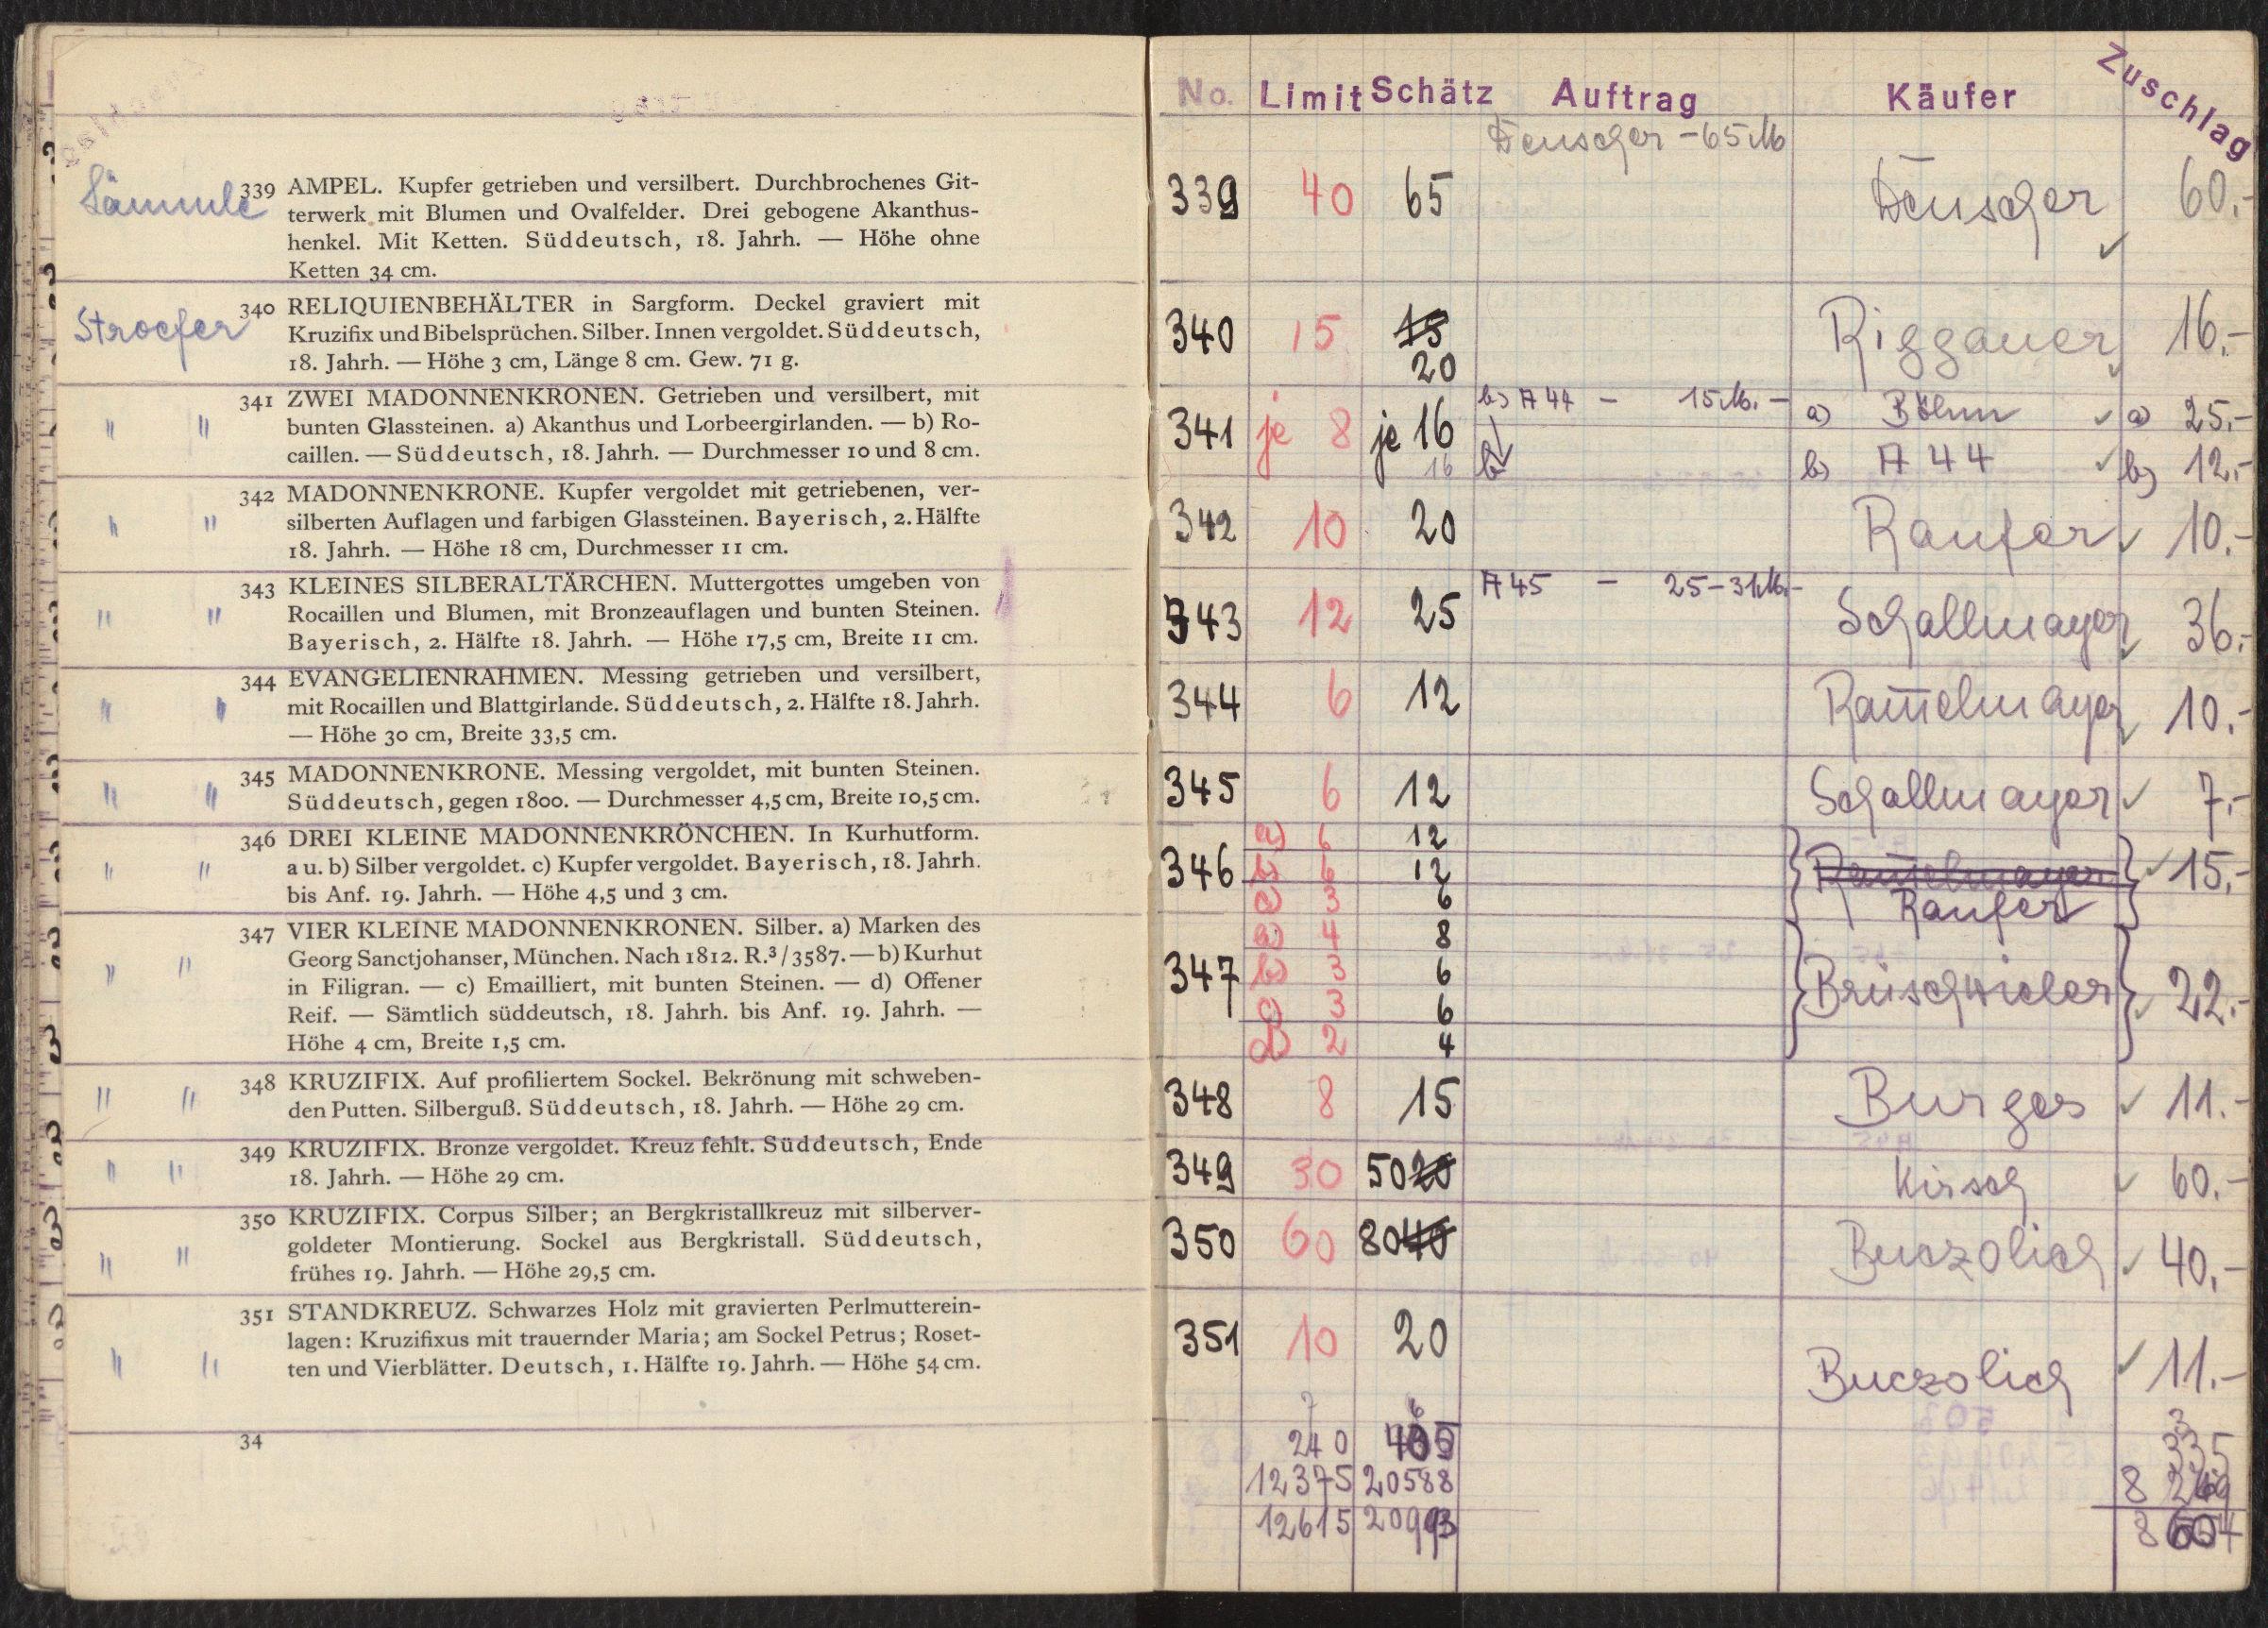 Sämmle
339 AMPEL. Kupfer getrieben und versilbert. Durchbrochenes Git-
terwerk mit Blumen und Ovalfelder. Drei gebogene Akanthus-
henkel. Mit Ketten. Süddeutsch, 18. Jahrh. — Höhe ohne
Ketten 34 cm.
Stroefer
340 RELIQUIENBEHÄLTER in Sargform. Deckel graviert mit
Kruzifix und Bibelsprüchen. Silber. Innen vergoldet. Süddeutsch,
18. Jahrh. — Höhe 3 cm, Länge 8 cm. Gew. 71 g.
341 ZWEI MADONNENKRONEN. Getrieben und versilbert, mit
" " bunten Glassteinen. a) Akanthus und Lorbeergirlanden. — b) Ro-
caillen. — Süddeutsch, 18. Jahrh. — Durchmesser 10 und 8 cm.
342 MADONNENKRONE. Kupfer vergoldet mit getriebenen, ver-
" " silberten Auflagen und farbigen Glassteinen. Bayerisch, 2. Hälfte
18. Jahrh. — Höhe 18 cm, Durchmesser 11 cm.
343 KLEINES SILBERALTÄRCHEN. Muttergottes umgeben von
" " Rocaillen und Blumen, mit Bronzeauflagen und bunten Steinen.
Bayerisch, 2. Hälfte 18. Jahrh. — Höhe 17,5 cm, Breite 11 cm.
344 EVANGELIENRAHMEN. Messing getrieben und versilbert,
" " mit Rocaillen und Blattgirlande. Süddeutsch, 2. Hälfte 18. Jahrh.
— Höhe 30 cm, Breite 33,5 cm.
345 MADONNENKRONE. Messing vergoldet, mit bunten Steinen.
" " Süddeutsch, gegen 1800. — Durchmesser 4,5 cm, Breite 10,5 cm.
346 DREI KLEINE MADONNENKRÖNCHEN. In Kurhutform.
" " a u. b) Silber vergoldet. c) Kupfer vergoldet. Bayerisch, 18. Jahrh.
bis Anf. 19. Jahrh. — Höhe 4,5 und 3 cm.
347 VIER KLEINE MADONNENKRONEN. Silber. a) Marken des
" " Georg Sanctjohanser, München. Nach 1812. R.³/3587. — b) Kurhut
in Filigran. — c) Emailliert, mit bunten Steinen. — d) Offener
Reif. — Sämtlich süddeutsch, 18. Jahrh. bis Anf. 19. Jahrh. —
Höhe 4 cm, Breite 1,5 cm.
" " 348 KRUZIFIX. Auf profiliertem Sockel. Bekrönung mit schweben-
den Putten. Silberguß. Süddeutsch, 18. Jahrh. — Höhe 29 cm.
349 KRUZIFIX. Bronze vergoldet. Kreuz fehlt. Süddeutsch, Ende
" " 18. Jahrh. — Höhe 29 cm.
350 KRUZIFIX. Corpus Silber; an Bergkristallkreuz mit silberver-
" " goldeter Montierung. Sockel aus Bergkristall. Süddeutsch,
frühes 19. Jahrh. — Höhe 29,5 cm.
351 STANDKREUZ. Schwarzes Holz mit gravierten Perlmutterein-
lagen: Kruzifixus mit trauernder Maria; am Sockel Petrus; Roset-
" " ten und Vierblätter. Deutsch, 1. Hälfte 19. Jahrh. — Höhe 54 cm.
34
No. Limit Schätz Auftrag Käufer Zuschlag
Deuscher - 65 M
339 40 65 Deuscher 60.-
340 15 15 Riggauer 16.-
20
b) A 44 - 15 M. - a) Böhm a) 25.-
341 je 8 je 16
16 b) b) A 44 b) 12.-
342 10 20 Raufer 10.-
A 45 - 25-31 M.-
343 12 25 Schallmayer 36.-
344 6 12 Ram̅elmayer 10.-
345 6 12 Schallmayer 7.-
a) 6 12
346 b) 6 12 Ram̅elmayer 15.-
c) 3 6 Raufer
a) 4 8
347 b) 3 6 Brüschwieler 22.-
c) 3 6
d) 2 4
348 8 15 Burges 11.-
349 30 50 20 Kirsch 60.-
350 60 80 40 Buczolich 40.-
351 10 20 Buczolich 11.-
240 335
12375 20588 8 269
12615 20993 8 604